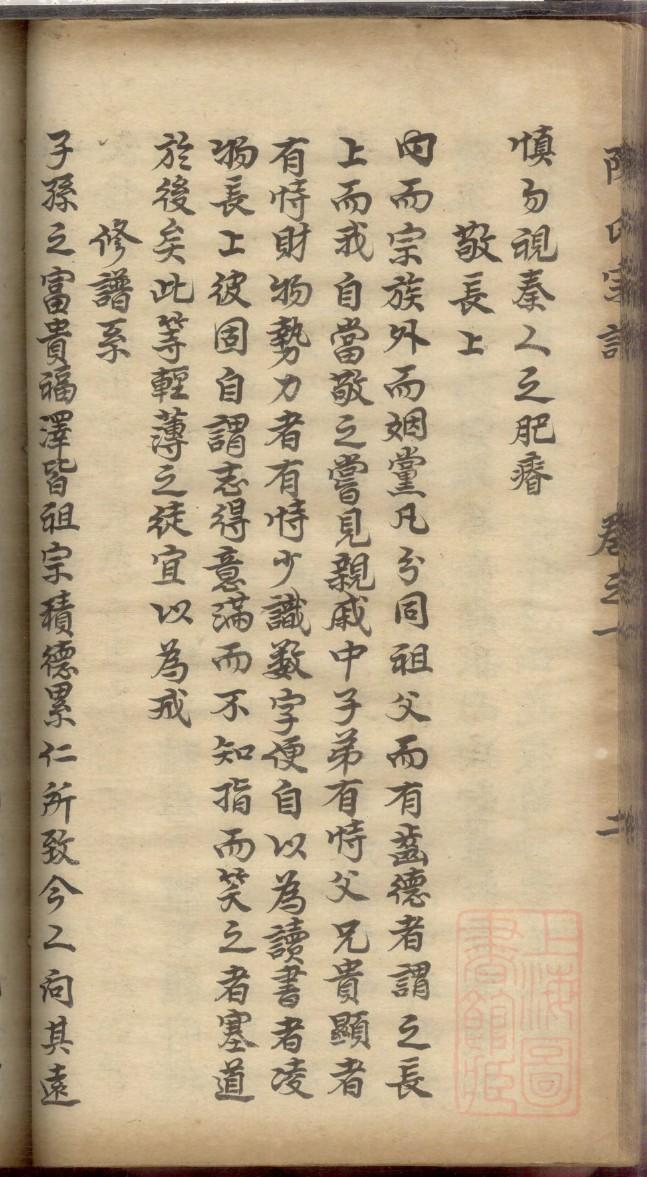 陳氏宗譜 卷之一 二
慎勿視秦人之肥瘠
敬長上
內而宗族外而姻黨凡分同祖父而有齒德者謂之長
上而我自當敬之嘗見親戚中子弟有恃父兄貴顯者
有恃財物勢力者有恃少識数字便自以為讀書者凌
物長上彼固自謂志得意滿而不知指而笑之者塞道
於後矣此等輕薄之徒宜以為戒
修譜系
子孫之富貴福澤皆祖宗積德累仁所致今人向其遠
上海圖
書館藏